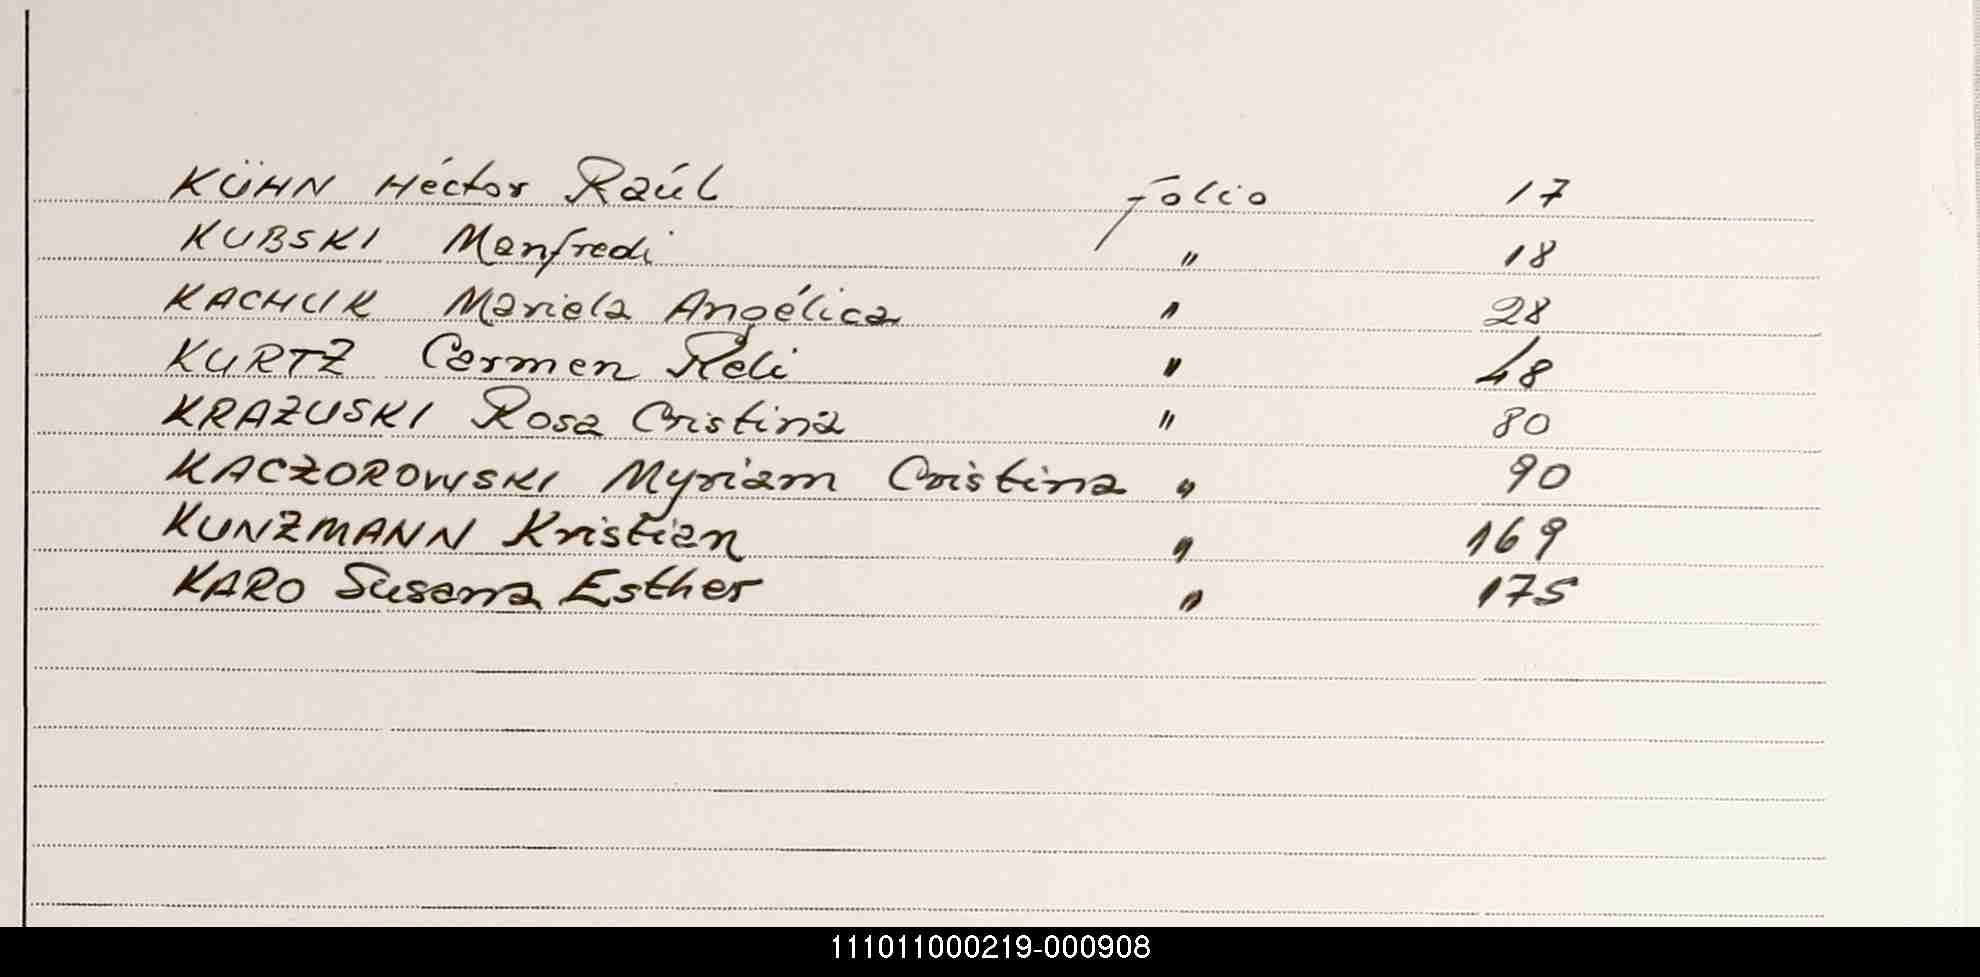 KÜHN Héctor Raúl Folio 17
KUBSKI Manfredi " 18
KACHUK Mariela Angélica " 28
KURTZ Carmen Reli " 48
KRAZUSKI Rosa Cristina " 80
KACZOROWSKI Myriam Cristina " 90
KUNZMANN Kristian " 169
KARO Susana Esther " 175
111011000219-000908